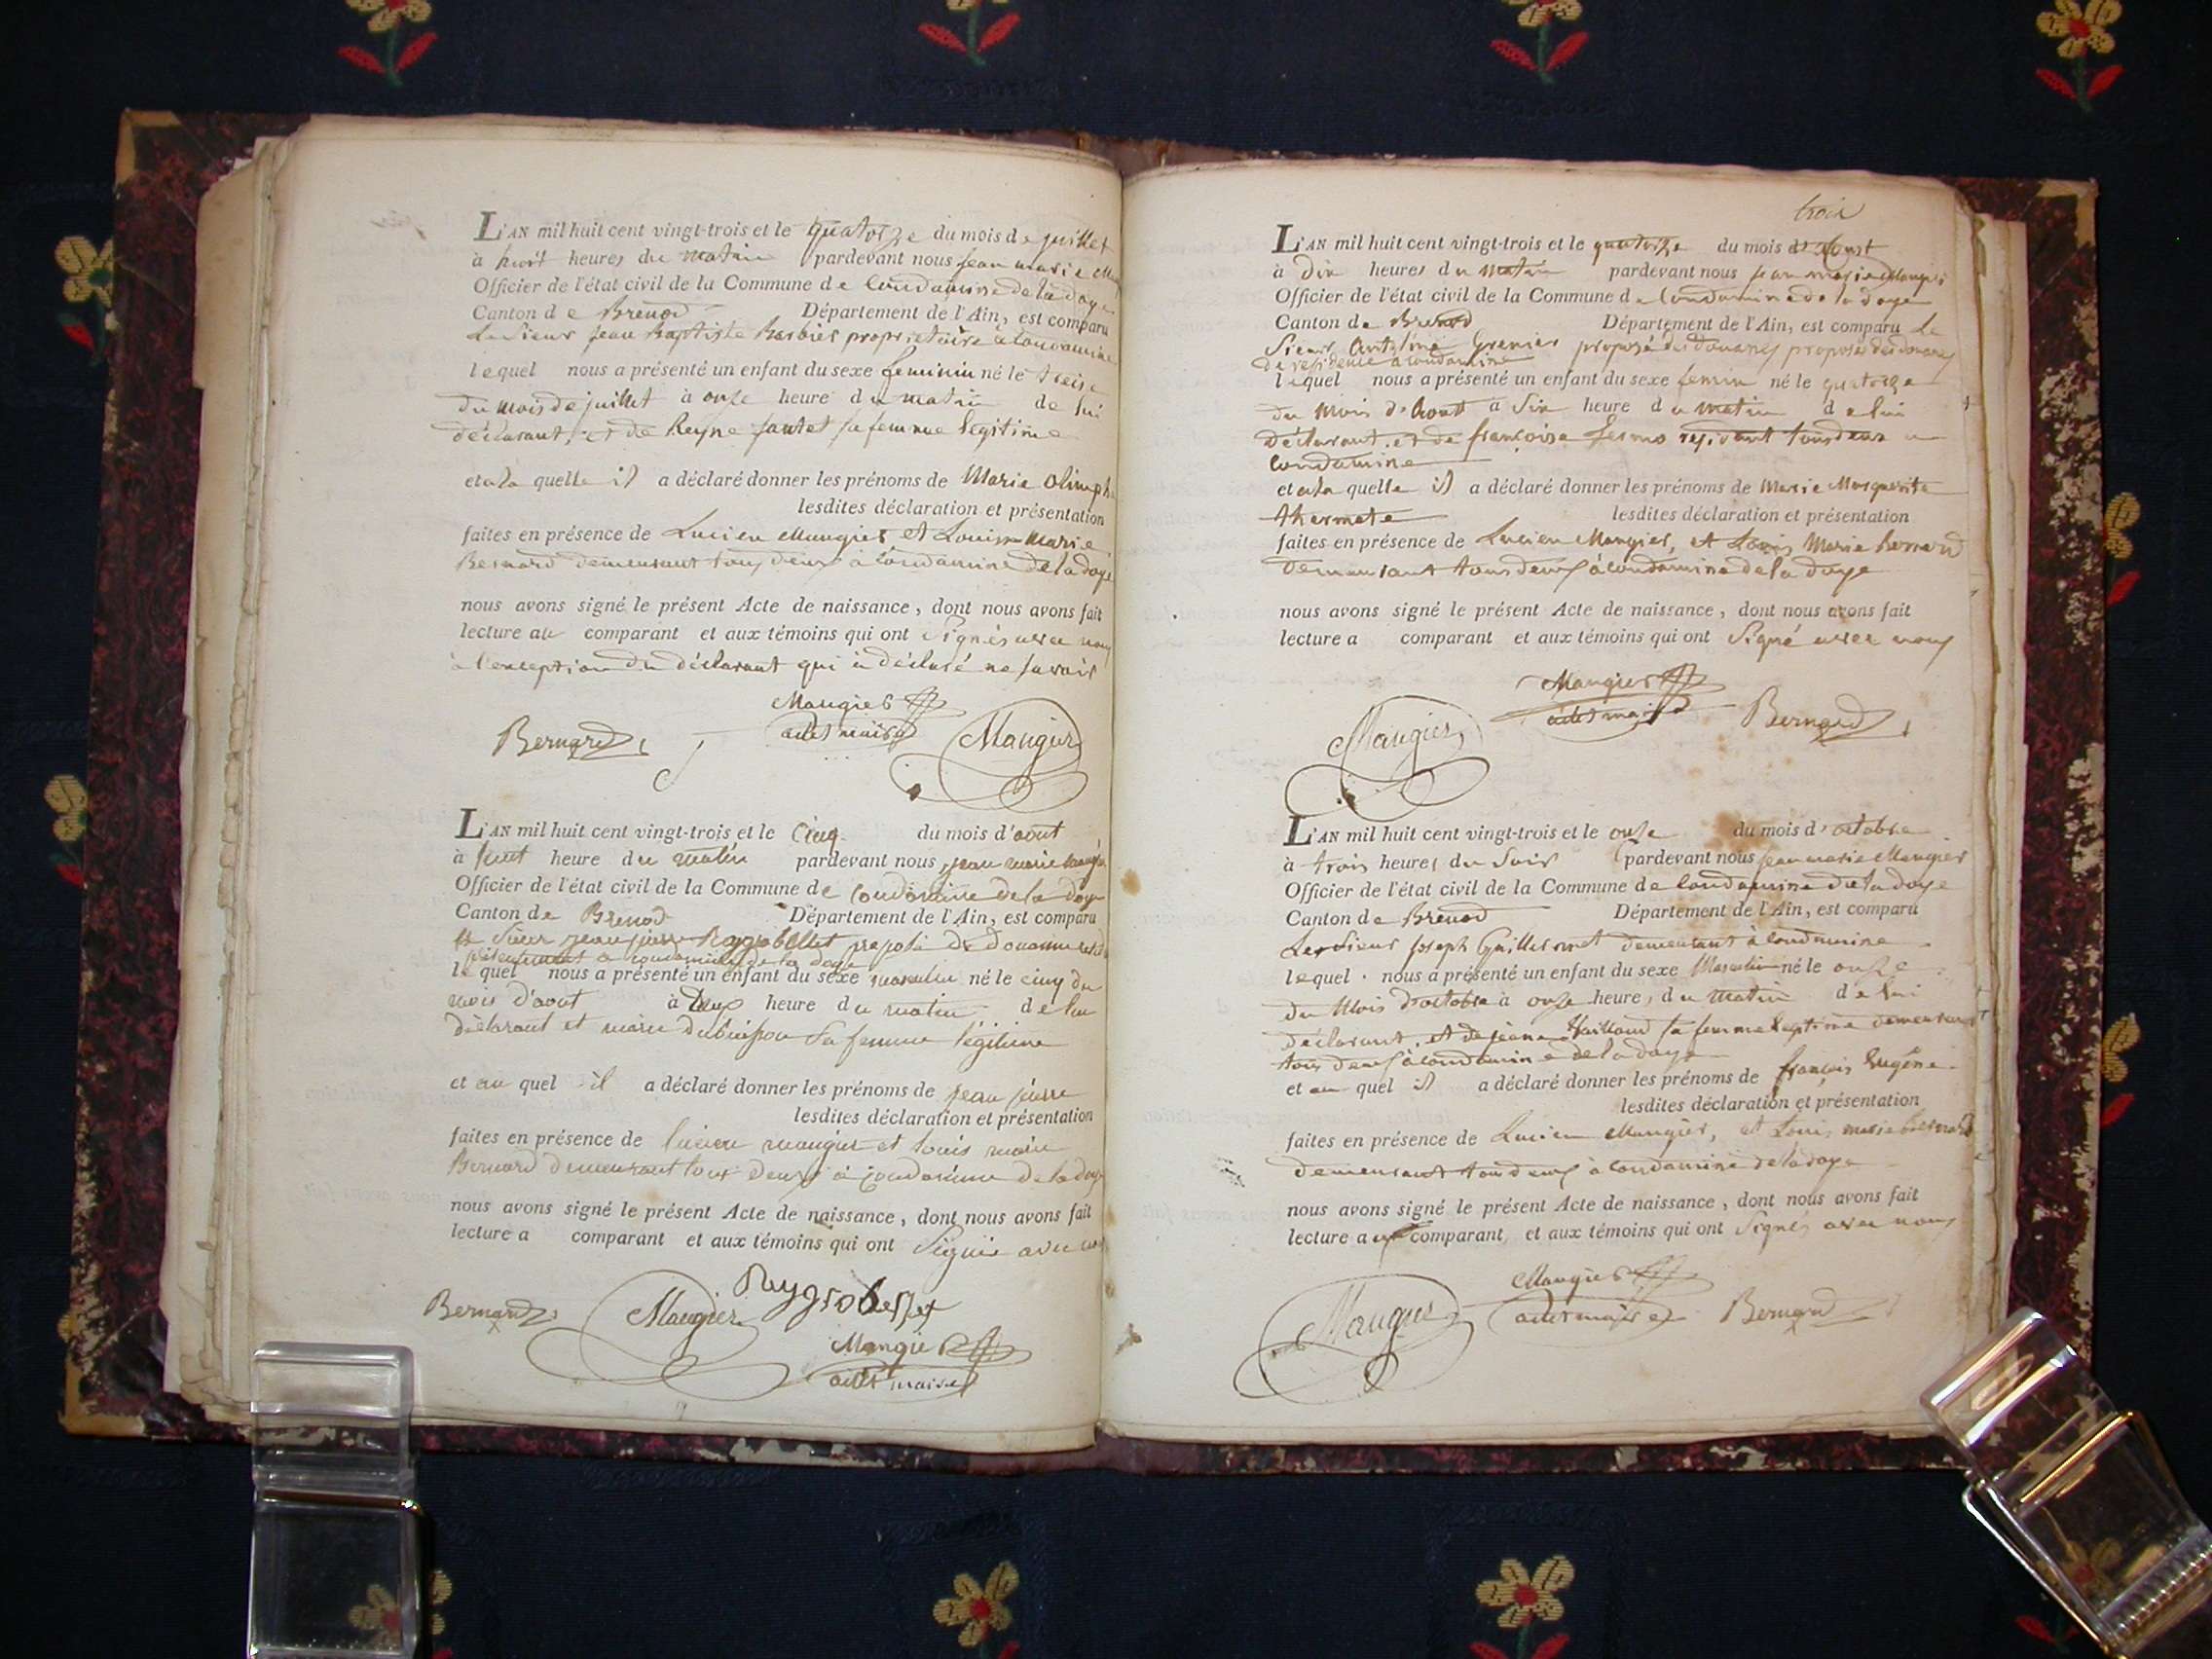 L'AN mil huit cent vingt-trois et le quatorze du mois de juillet
à huit heures du matin pardevant nous jean marie
Officier de l'état civil de la Commune de Condamine de la doye
Canton de Brenod Département de l'Ain, est comparu
Le Sieur jean Baptiste Barbier proprietaire à Condamine
lequel nous a présenté un enfant du sexe feminin né le treise
du mois de juillet à onze heure du matin de lui
déclarant, et de Reyne fautet sa femme legitime
et a la quelle il a déclaré donner les prénoms de Marie olimphe
lesdites déclaration et présentation
faites en présence de Lucien Maugier et Louis marie
Bernard demeurant tous deux à Condamine de la doye
nous avons signé le présent Acte de naissance, dont nous avons fait
lecture au comparant et aux témoins qui ont Signés avec nous
à l'exception du déclarant qui a déclaré ne savoir
Maugier
Bernard adet maire Maugier
L'AN mil huit cent vingt-trois et le Cinq du mois d'aout
à huit heure du matin pardevant nous jean marie maugier
Officier de l'état civil de la Commune de Condamine de la Doye
Canton de Brenod Département de l'Ain, est comparu
le Sieur jean pierre Raygrobellet préposé de Douanne
à condamine de la doye
le quel nous a présenté un enfant du sexe masculin né le cinq du
mois d'aout à deux heure du matin de lui
déclarant et marie dubuisson Sa femme légitime
et au quel il a déclaré donner les prénoms de jean pierre
lesdites déclaration et présentation
faites en présence de lucien maugier et louis marie
Bernard demeurant tous deux à condamine de la doye
nous avons signé le présent Acte de naissance, dont nous avons fait
lecture a comparant et aux témoins qui ont Signé avec nous
Raygrobellet
Bernard Maugier
Maugier
adet maire
trois
L'AN mil huit cent vingt-trois et le quatorze du mois d'Aoust
à dix heures du matin pardevant nous jean marie Maugier
Officier de l'état civil de la Commune de Condamine de la doye
Canton de Brenod Département de l'Ain, est comparu Le
Sieur Grenier préposé des douanes préposé des douanes
de residence a condamine
lequel nous a présenté un enfant du sexe femin né le quatorze
du mois d'Aoust à Six heure du matin de lui
déclarant, et de françoise residant tous deux a
Condamine
et a la quelle il a déclaré donner les prénoms de Marie Marguerite
lesdites déclaration et présentation
faites en présence de Lucien Maugier, et Louis Marie Bernard
demeurant tous deux à Condamine de la doye
nous avons signé le présent Acte de naissance, dont nous avons fait
lecture a comparant et aux témoins qui ont Signé avec nous
Maugier
Maugier adet maire Bernard
L'AN mil huit cent vingt-trois et le onze du mois d'octobre
à trois heures du Soir pardevant nous jean marie Maugier
Officier de l'état civil de la Commune de Condamine de la doye
Canton de Brenod Département de l'Ain, est comparu
Le Sieur joseph Guillermet demeurant à Condamine
lequel nous a présenté un enfant du sexe Masculin né le onze
du Mois d'octobre à onze heures du matin de lui
déclarant, et de jeane sa femme legitime demeurant
tous deux à Condamine de la doye
et au quel il a déclaré donner les prénoms de françois Eugéne
lesdites déclaration et présentation
faites en présence de Lucien Maugier, et Louis marie bernard
demeurant tous deux à Condamine de la doye
nous avons signé le présent Acte de naissance, dont nous avons fait
lecture au comparant et aux témoins qui ont Signés avec nous
Maugier
Maugier adet maire Bernard